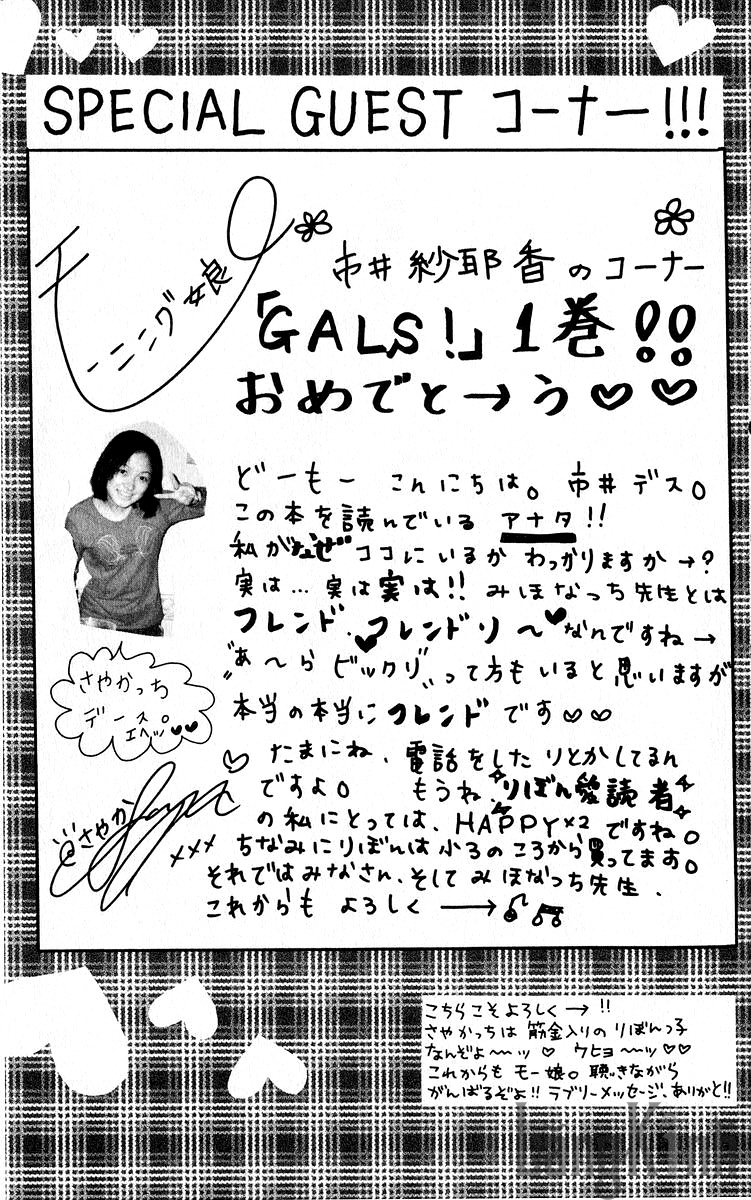 SPECIAL GUEST コーナー!!!
モーニング娘
市井紗耶香のコーナー
「GALS!」1巻!!
おめでと→う♡♡
どーもー こんにちは。市井デス。
この本を読んでいる アナタ!!
私がなぜココにいるか わっかりますか→?
実は…実は実は!! みほなっち先生とは
フレンド、フレンドリ〜♥なんですね→
"あ〜ら ビックリ"って方もいると思いますが
本当の本当にフレンドです♡♡
♡ たまにね、電話をしたりとかしてるん
ですよ。 もうね、りぼん愛読者
の私にとっては、HAPPY×2ですね。
××× ちなみにりぼんは小3のころから買ってます。
それではみなさん、そして みほなっち先生、
これからも よろしく →♪♫
さやかっち
デース。
エヘッ♡♡
さやか
こちらこそよろしく→!!
さやかっちは 筋金入りの りぼんっ子
なんぞよ〜〜ッ♡ ウヒョ〜〜ッ♡♡
これからも モー娘。聴きながら
がんばるぞよ!! ラブリーメッセージ、ありがと!!